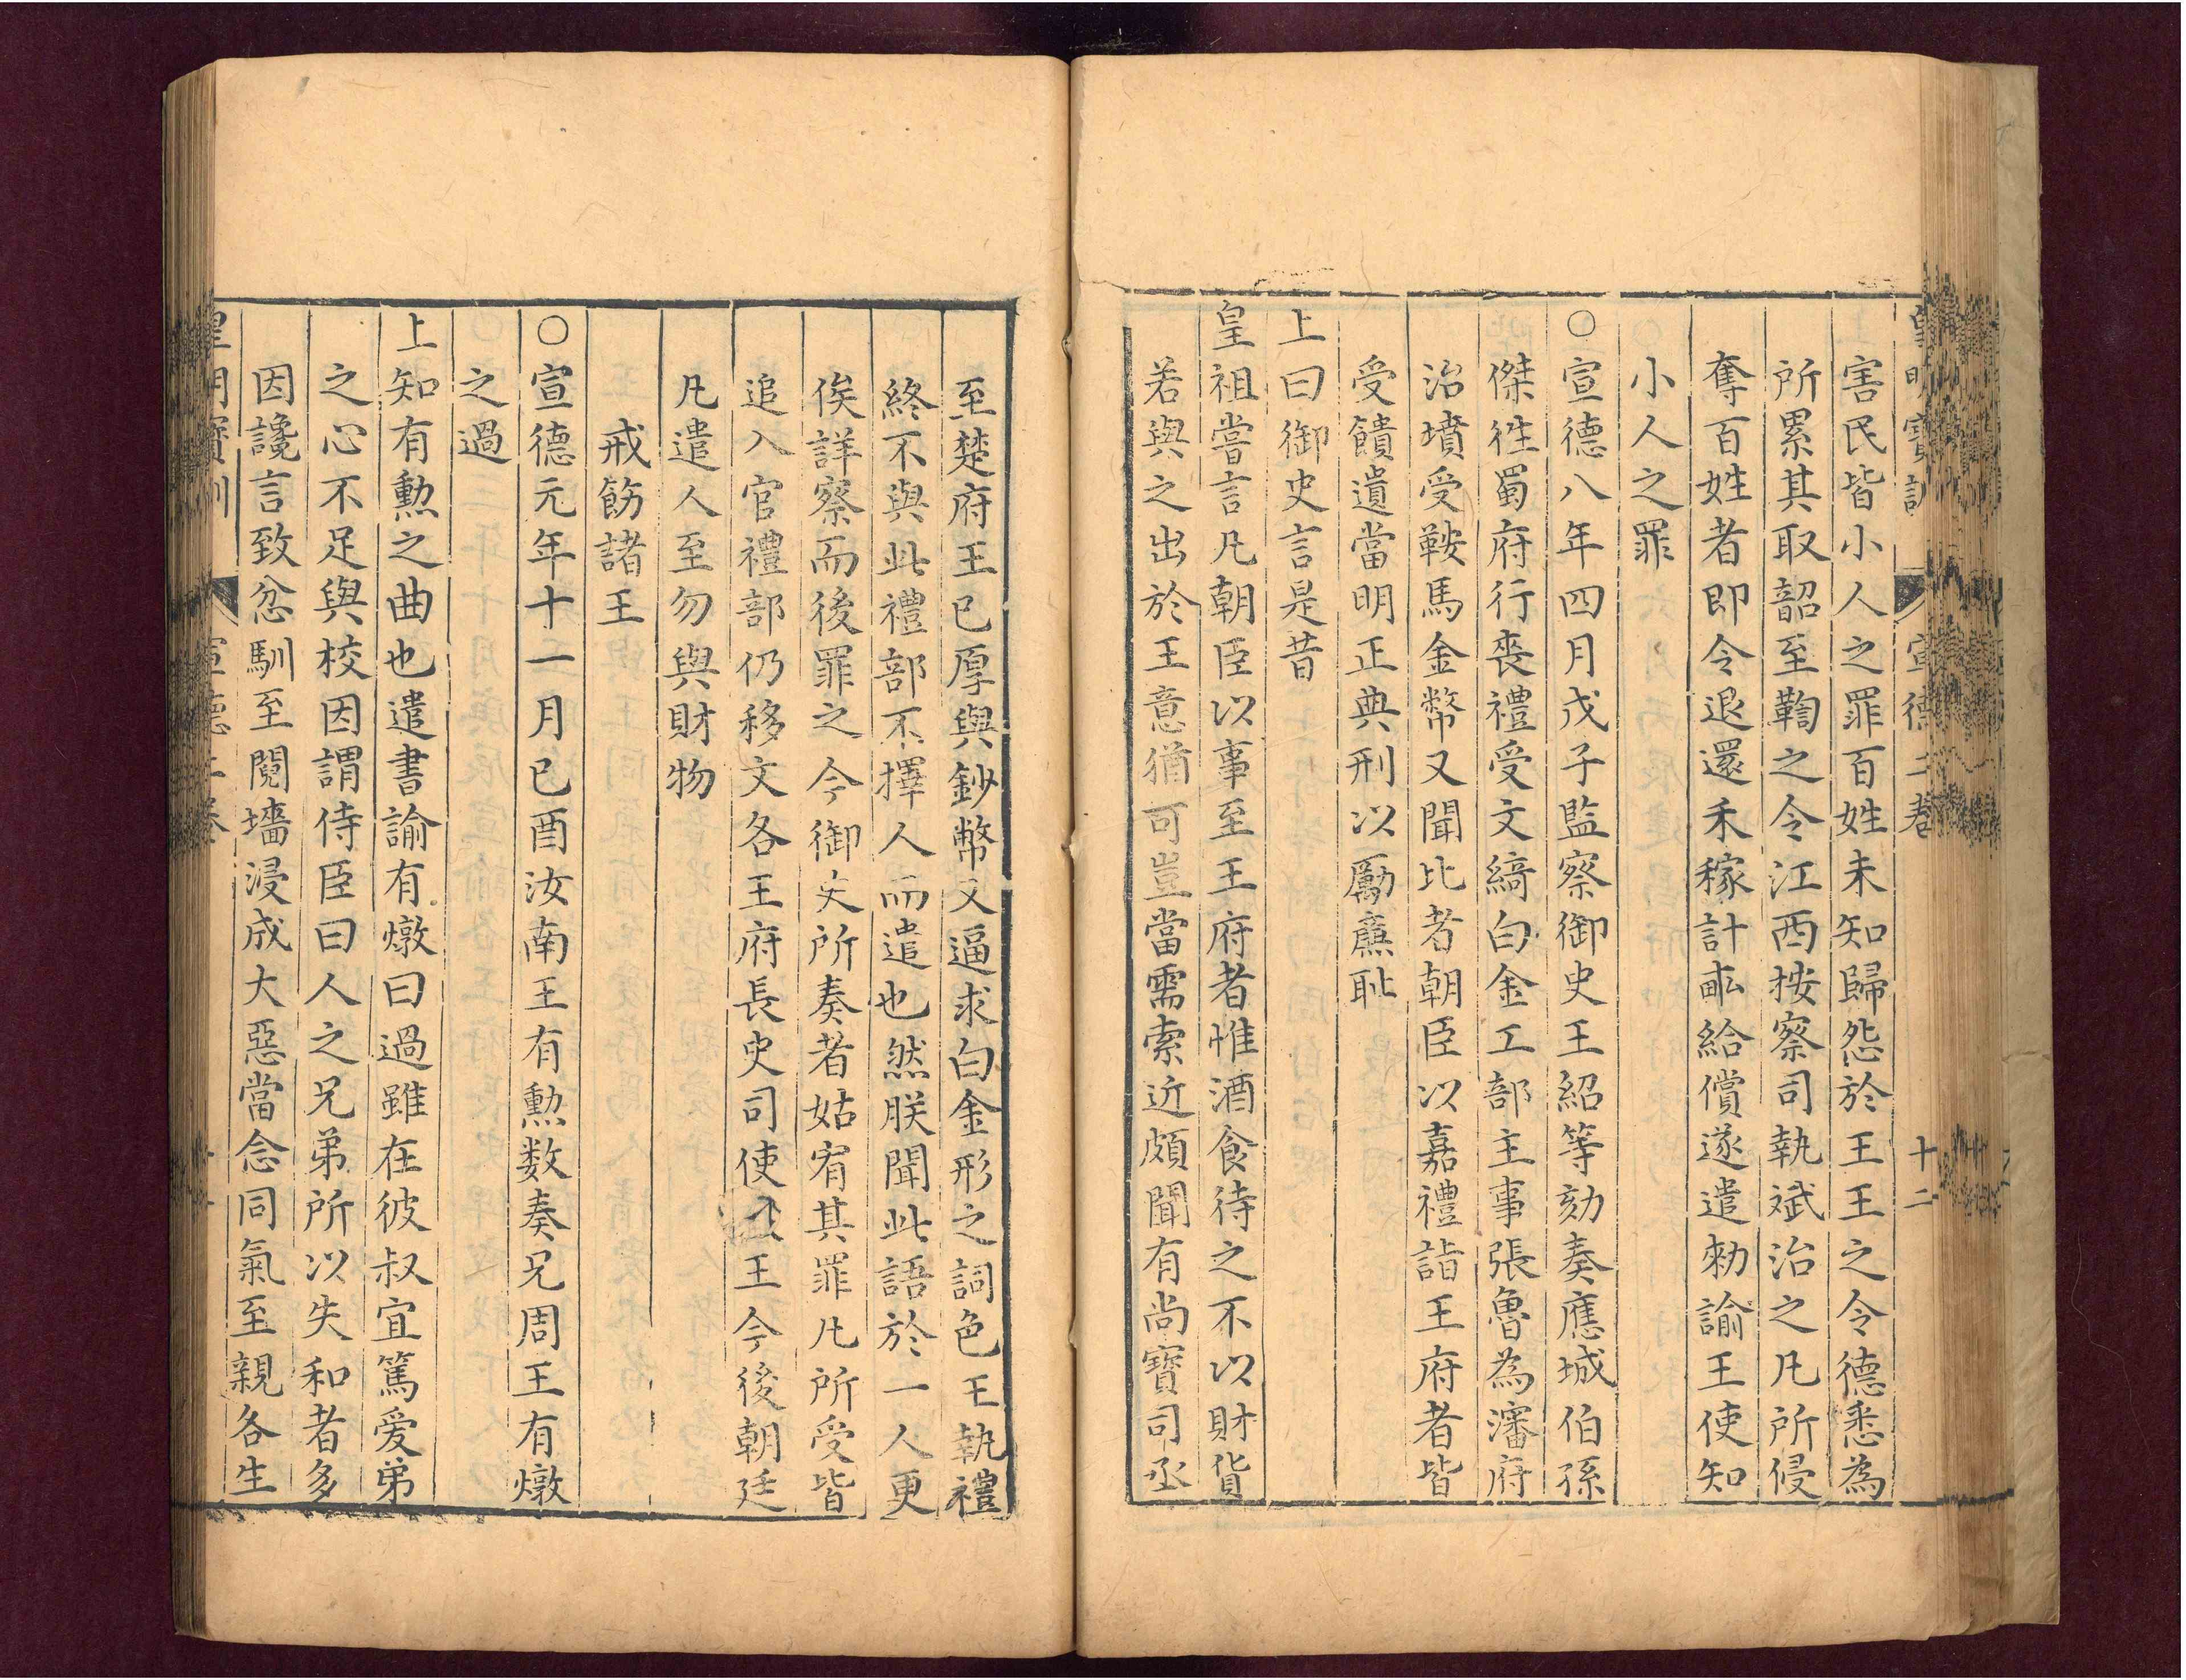 皇明寶訓 宣德二卷 十二
害民皆小人之罪百姓未知歸怨於王王之令德悉為
所累其取韶至鞫之令江西按察司執斌治之凡所侵
奪百姓者即令退還禾稼計畝給償遂遣勑諭王使知
小人之罪
○宣德八年四月戊子監察御史王紹等劾奏應城伯孫
傑徃蜀府行喪禮受文綺白金工部主事張魯為瀋府
治墳受鞍馬金幣又聞比者朝臣以嘉禮詣王府者皆
受饋遺當明正典刑以勵廉耻
上曰御史言是昔
皇祖嘗言凡朝臣以事至王府者惟酒食待之不以財貨
若與之出於王意猶可豈當需索近頗聞有尚寶司丞
至楚府王已厚與鈔幣又逼求白金形之詞色王執禮
終不與此禮部不擇人而遣也然朕聞此語於一人更
俟詳察而後罪之今御史所奏者姑宥其罪凡所受皆
追入官禮部仍移文各王府長史司使啟王今後朝廷
凡遣人至勿與財物
戒飭諸王
○宣德元年十一月已酉汝南王有勳数奏兄周王有燉
之過
上知有勳之曲也遣書諭有燉曰過雖在彼叔宜篤爱弟
之心不足與校因謂侍臣曰人之兄弟所以失和者多
因讒言致忿馴至鬩墻浸成大惡當念同氣至親各生
皇明寶訓 宣德二卷